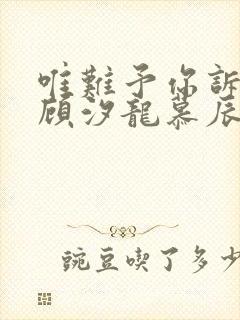 唯難予你訴
顾汐龍慕辰
豌豆喫了多少